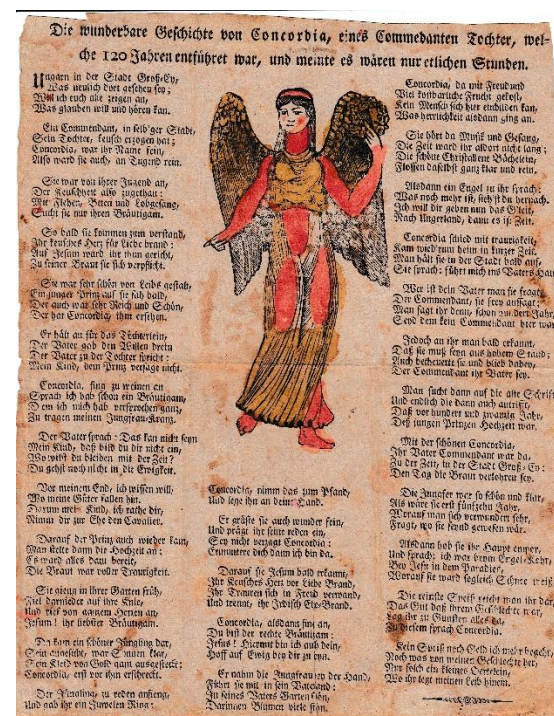 Die wunderbare Geschichte von Concordia, eines Commedanten Tochter, wel-
che 120 Jahren entführet war, und meinte es wären nur etlichen Stunden.
Ungarn in der Stadt Groß-Ey,
Was neulich dort geschen sey;
Will ich euch alle zeigen an,
Was glauben will und hören kan.
Ein Commendant, in selb'ger Stadt,
Sein Tochter, keusch erzogen hat;
Concordia, war ihr Name fein,
Also ward sie auch, an Tugend rein.
Sie war von ihrer Jugend an,
Der Keuschheit also zugethan:
Mit Flehen, Beten und Lobgesang,
Sucht sie nur ihren Bräutigam.
So bald sie kommen zum verstand,
Ihr keusches Herz für Liebe brand:
Auf Jesum ward ihr thun gericht,
Zu seiner Braut sie sich verpflicht.
Sie war sehr schön von Leibs gestalt,
Ein junger Prinz auf sie fah bald,
Der auch war sehr Reich und Schön,
Der hat Concordia, ihm ersehen.
Er hält an für das Töchterlein,
Der Vater gab den Willen drein
Der Vater zu der Tochter spricht:
Mein Kind, dem Prinz versage nicht.
Concordia, fing zu weinen an
Sprach ich hab schon ein Bräutigam,
Dem ich mich hab versprochen ganz,
Zu tragen meinen Jungfrau-Kranz.
Der Vater sprach: Das kan nicht seyn
Mein Kind, daß bild du dir nicht ein,
Wo wilst du bleiben mit der Zeit?
Du gehst noch nicht in die Ewigkeit.
Vor meinem End, ich wissen will,
Wo meine Güter fallen hin.
Darum mein Kind, ich rathe dir,
Nimm dir zur Ehe den Cavalier.
Darauf der Prinz auch wieder kam,
Man stelte dann die Hochzeit an:
Es ward alles dazu bereit,
Die Braut war voller Traurigkeit.
Sie gieng in ihrer Garten früh,
Fiel darnieder auf ihre Knie,
Und rief von ganzem Herzen an,
Jesum! ihr liebster Bräutigam.
Da kam ein schöner Jüngling dar,
Sein angesicht, war Sonnen klar,
Sein Kleid von Gold ganz ausgesteckt;
Concordia, erst vor ihm erschreckt.
Der Jüngling, zu reden anfieng,
Und gab ihr ein Juwelen Ring:
Concordia, nimm das zum Pfand,
Und lege ihn an deine Hand.
Er grüßte sie auch wunder fein,
Und prägt ihr seine reden ein,
Sey nicht verzagt Concordia:
Ermuntere dich dann ich bin da.
Darauf sie Jesum bald erkannt,
Ihr Keusches Herz vor Liebe Brand,
Ihr Trauren sich in Freud verwand,
Und trennt, ihr Irdisch Ehe-Brand.
Concordia, alsdann fing an,
Du bist der rechte Bräutigam:
Jesus! Hiermit bin ich aus dein,
Hoff auf Ewig bey dir zu seyn.
Er nahm die Jungfrau bey der Hand,
Führt sie mit in sein Vaterland:
In seines Vaters Garten fein,
Darinnen Blumen viele seyn.
Concordia, da mit Freud und
Viel kostbarliche Frucht gekost,
Kein Mensch sich hier einbilden kan,
Was herrlichkeit alsdann ging an.
Sie hört da Musik und Gesang,
Die Zeit ward ihr aldort nicht lang;
Die schöne Christallene Bächelein,
Flossen daselbst ganz klar und rein.
Alsdann ein Engel zu ihr sprach:
Was noch mehr ist, siehst du hernach.
Ich will dir geben nun das G'leit,
Nach Ungerland, dann es ist Zeit.
Concordia schied mit traurigkeit,
Kam wiedrum heim in kurzer Zeit.
Man hält sie in der Stadt bald auf,
Sie sprach: führt mich ins Vaters Haus
Wer ist dein Vater man sie fragt;
Der Commendant, sie frey aussagt;
Man sagt ihr denn, schon vor drey Jahr,
Seyd dem kein Commendant hier war.
Jedoch an ihr man bald erkannt,
Daß sie muß seyn aus hohem Stand;
Auch betheuert sie und blieb dabey,
Der Commendant ihr Vater sey.
Man sucht dann auf die alte Schrift
Und endlich die dann auch antrift,
Daß vor hundert und zwanzig Jahr,
Deß jungen Prinzen Hochzeit war.
Mit der schönen Concordia,
Ihr Vater Commendant war da,
Zu der Zeit, in der Stadt Groß-Ey:
Den Tag die Braut verlohren sey.
Die Jungfer war so schön und klar,
Als wäre sie erst fünfzehn Jahr,
Worauf man sich verwundert sehr,
Fragt, wo sie seynd gewesen wär.
Alsdann hob sie ihr Haupt empor,
Und sprach: ich war beym Engel-Kohr,
Bey Jesu in dem Paradies,
Worauf sie ward sogleich Schnee weiß
Die reinste Speiß reicht man ihr dar,
Das Gut daß ihrem Geschlechte war,
Lag ihr zu Gunsten alles da,
Zu diesem sprach Concordia.
Kein Speiß noch Geld ich mehr begehr,
Noch was von meiner Geschlechte her,
Nur solch ein kleines Oertelein,
Wo ihr legt meinen Leib hinein.